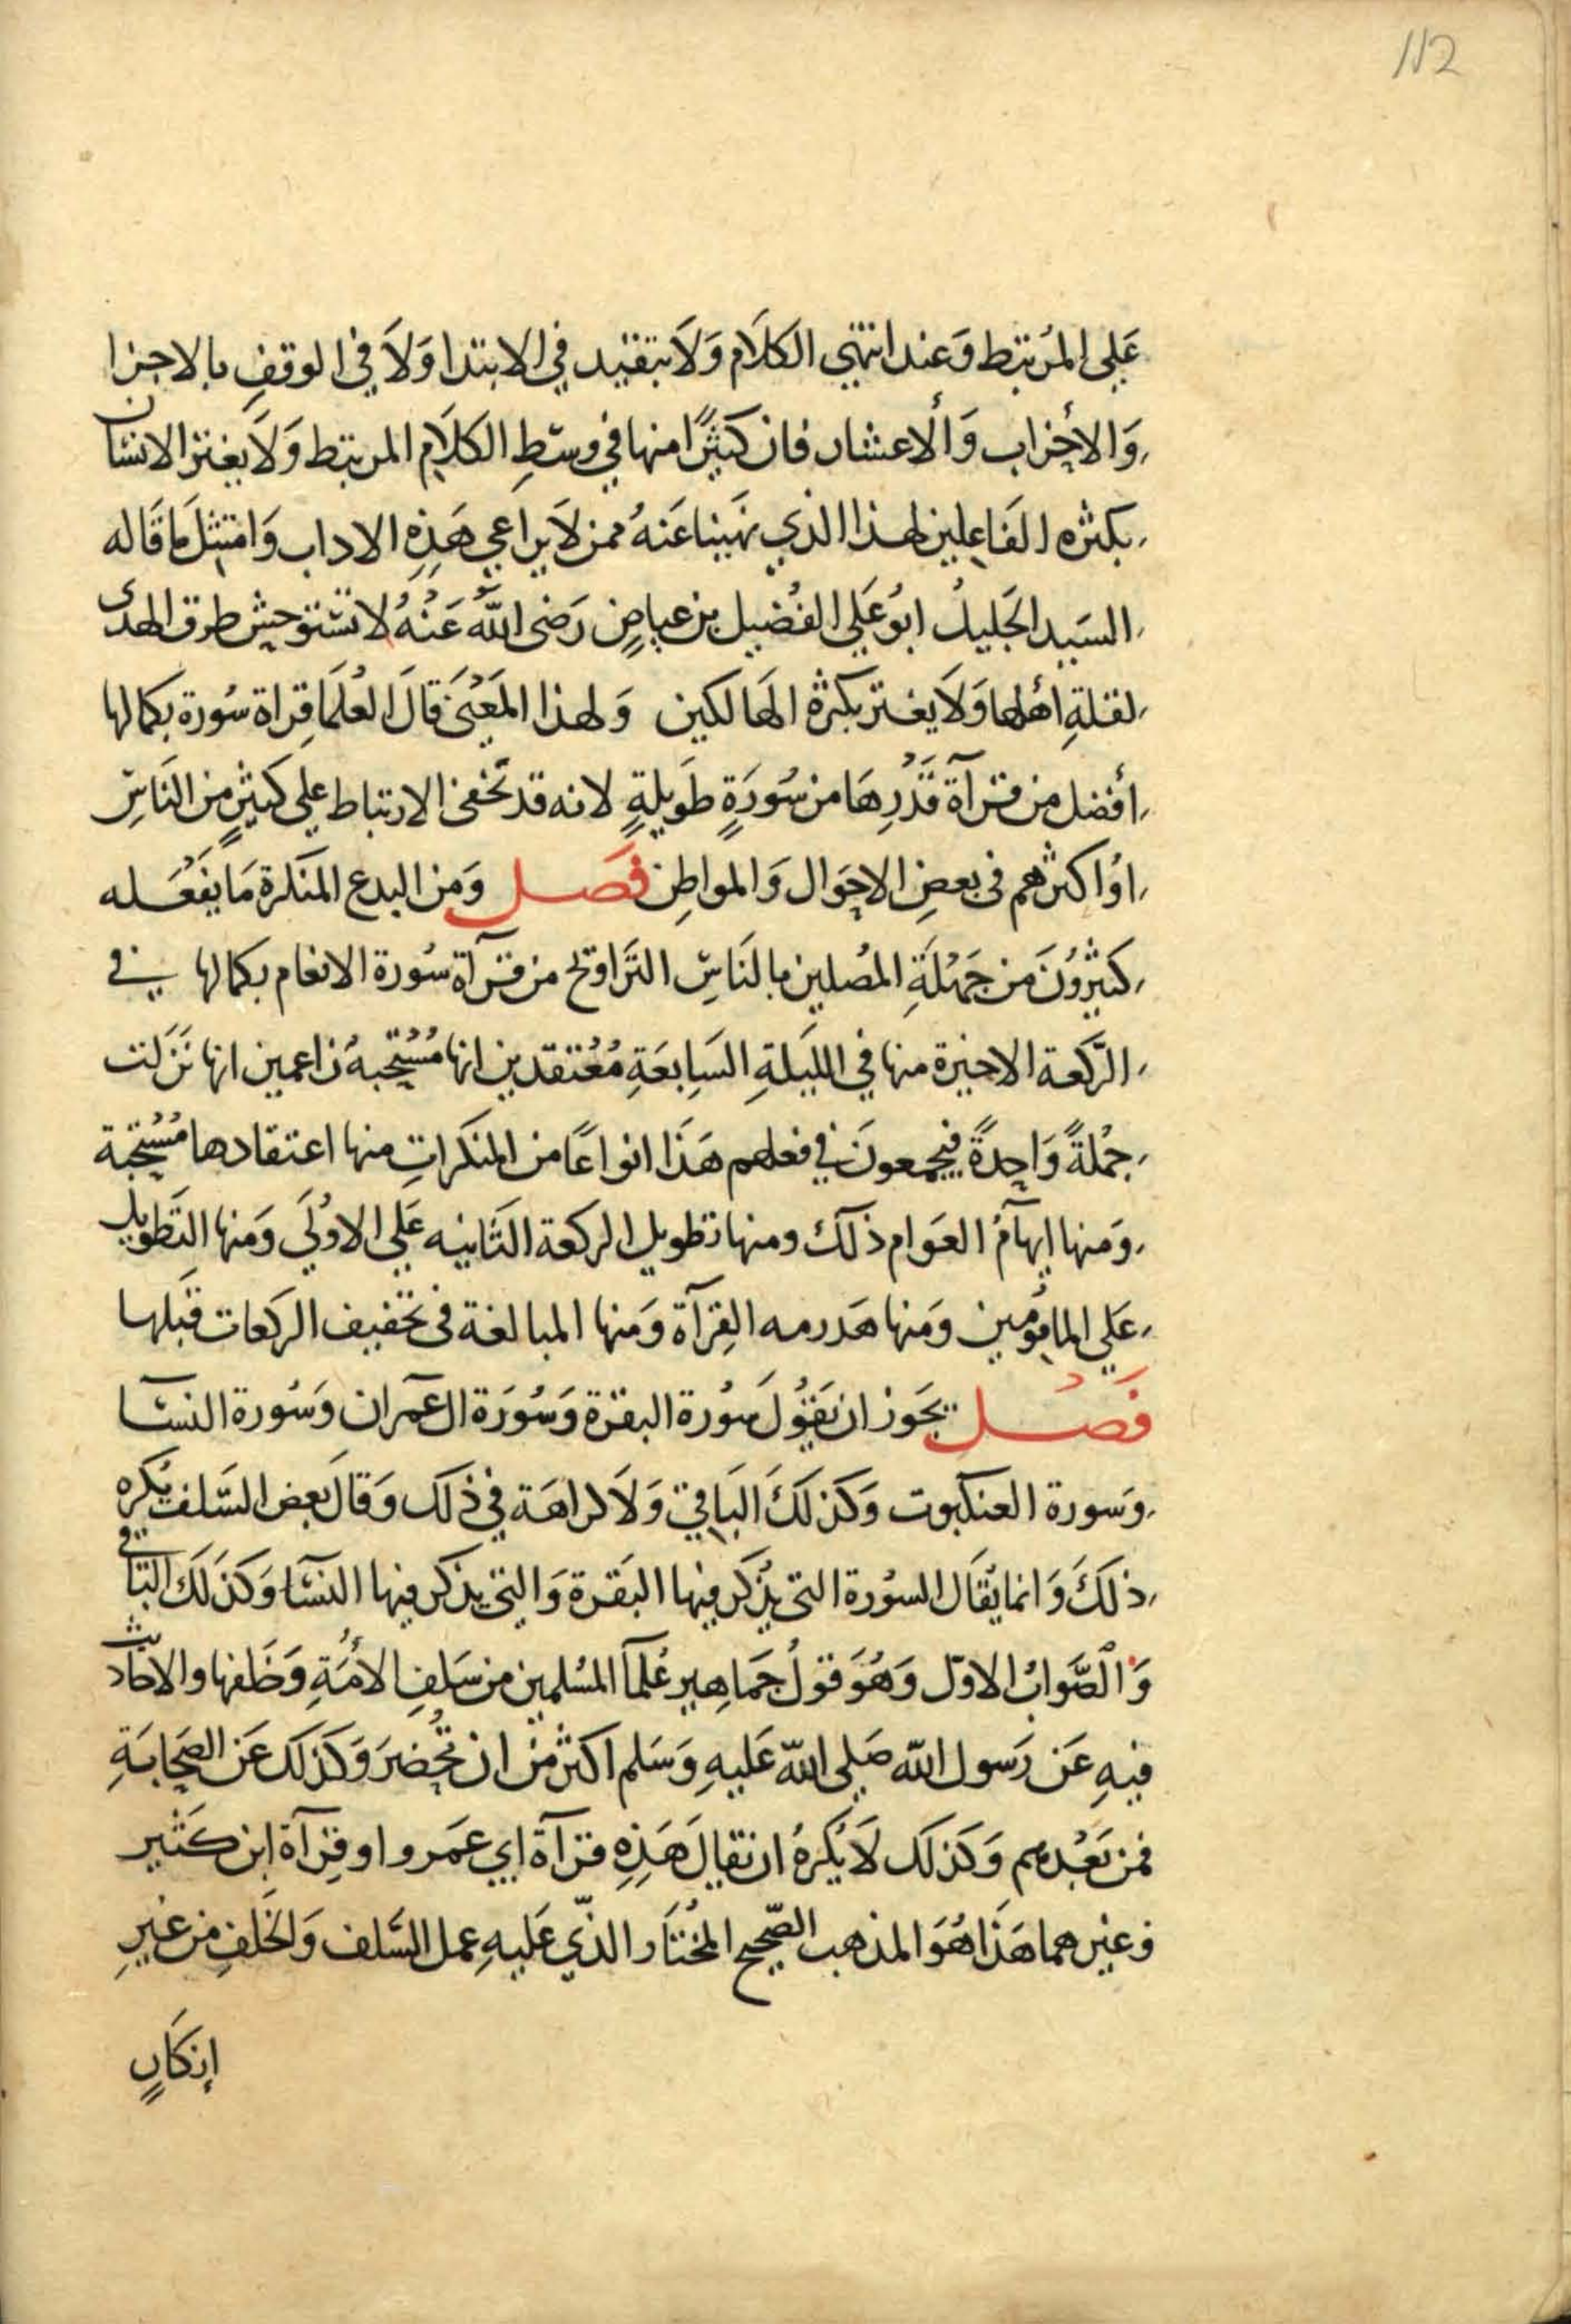 112
عَلى المُرتبط وَعند انتهى الكلَام وَلَا يتقيد في الابتدا وَلَا في الوقفِ بالاجزا
وَالأحزاب وَألاعشار فان كثيرًا منها في وسَطِ الكلَامِ المرتبط وَلَا يغتر الانسان
بكثره الفَاعِلين لهذا الذي نَهينا عَنهُ ممن لَا يراعي هَذِهِ الاداب وَامتثل مَا قَاله
السَيد الجَليلُ ابوُ عَلي الفُضيل بن عياضٍ رَضى اللّهُ عَنْهُ لا تستوحش طرق الهدى
لقلةِ أهلها وَلَا يغتر بكثرة الهَالكين وَلهذا المَعْنَى قَالَ العُلَمَا قِراة سُورة بكمالها
أفضل من قرآة قَدْرِهَا من سُورَةٍ طَويلةٍ لانه قد تخفى الارتباط على كثيرٍ من النَاسِ
اوُ اكثرهم في بعضِ الاحَوال وَالمواطِن فَصَل وَمن البدع المنَكرة مَا يفَعَله
كثيرُونَ من جَمْلَةِ المصُلين بالنَاسِ التَراوِيح من قرآة سُورة الانعام بكمالها في
الرَكعة الاخيرة منها في الليَلةِ السَابِعَةِ مُعْتقدين انها مُسْتحبهُ زاعمين انها نَزَلت
جمُلةً وَاحِدةً فيجمعونَ في فعلهم هَذَا انواعًا من المنكَراتِ منها اعتقادها مُسْتحبة
وَمنها إيهآمُ العَوام ذلكَ ومنها تطويل الركعة الثَانيه عَلى الاوُلَى وَمنها التَطويل
عَلى المأمُومين وَمنها هَدرمه القِرآة وَمنها المبالغة فى تخفيف الركعات قبَلها
فَصُل يجَوز ان يَقوُلَ سُورة البقرة وَسُورَة ال عمران وَسُورة النسَا
وَسورة العنكبوت وَكذلكَ البَاقي وَلَا كراهَة في ذلك وَقالَ بعض السَلف يُكره
ذلكَ وَانما يُقَال السوُرة التى يُذكر فيها البَقرة وَالتى يذكر فيها النسَا وَكذلكَ البَاقي
وَالصَوابُ الاوَل وَهُوَ قوَلُ جمَاهِير عُلمَا المُسْلمين من سَلفِ الأمُةِ وَخَلفها والاحَاديث
فيهِ عَن رَسول اللّه صَلى اللّه عَليهِ وَسَلم اكثر منْ ان تحُصَرَ وَكذلَك عَن الصَحَابَةِ
فمن بَعْدهم وَكذلَك لَا يُكُرهُ ان يقالَ هَذِهِ قرآة ابي عَمَرو او قِرآة ابن كَثير
وغيرهما هَذَا هُوَ المذهب الصَحيح المخُتَار الذّي عَليهِ عمل السَلف وَالخلَفِ من غيرِ
إنكَارٍ